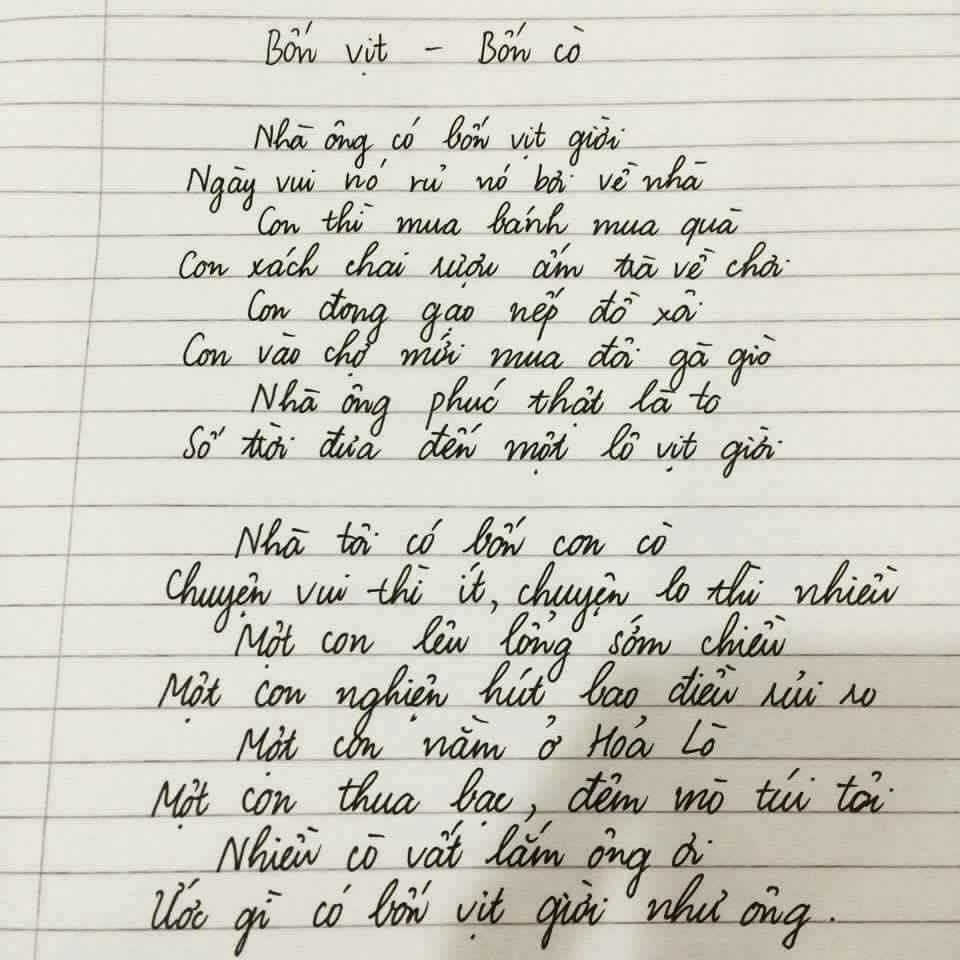 Bốn vịt - Bốn cò
Nhà ông có bốn vịt giời
Ngày vui nó rủ nó bơi về nhà
Con thì mua bánh mua quà
Con xách chai rượu ấm trà về chơi
Con đong gạo nếp đồ xôi
Con vào chợ mới mua đôi gà giò
Nhà ông phúc thật là to
Số trời đưa đến một lô vịt giời
Nhà tôi có bốn con cò
Chuyện vui thì ít, chuyện lo thì nhiều
Một con lêu lổng sớm chiều
Một con nghiện hút bao điều rủi ro
Một con nằm ở Hỏa Lò
Một con thua bạc, đêm mò túi tôi
Nhiều cò vất lắm ông ơi
Ước gì có bốn vịt giời như ông.